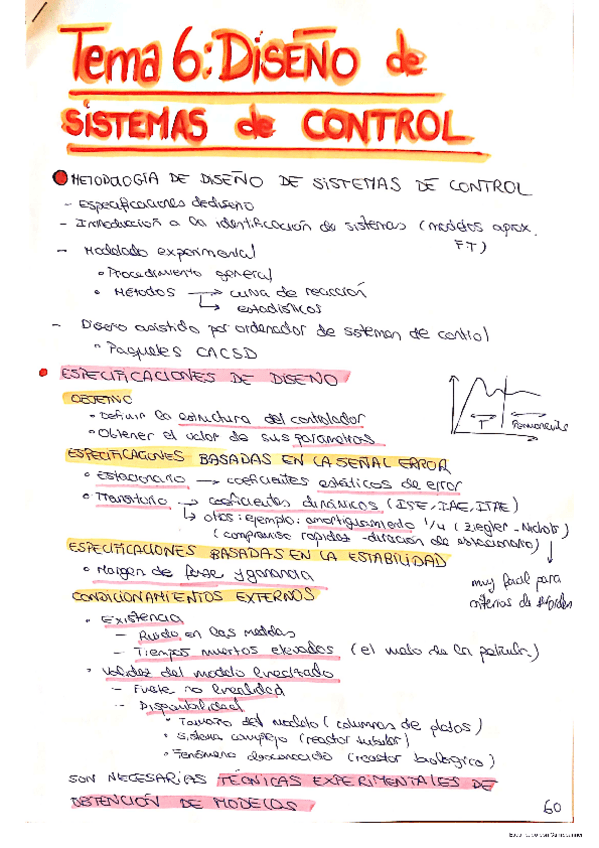 Tema 6: DISEÑO de
SISTEMAS de CONTROL
METODOLOGÍA DE DISEÑO DE SISTEMAS DE CONTROL
- Especificaciones de diseño
- Introducción a la identificación de sistemas (modelos aprox.
FT)
- Modelado experimental
• Procedimiento general
• Métodos → curva de reacción
↳ estadísticos
- Diseño asistido por ordenador de sistemas de control
" Paquetes CACSD
• ESPECIFICACIONES DE DISEÑO
OBJETIVO
• Definir la estructura del controlador
• Obtener el valor de sus parámetros
T Permanente
ESPECIFICACIONES BASADAS EN LA SEÑAL ERROR
• Estacionario → coeficientes estáticos de error
• Transitorio → coeficientes dinámicos (ISE, IAE, ITAE)
↳ otros: ejemplo: amortiguamiento 1/4 (Ziegler-Nichols)
(compromiso rapidez - duración de estacionario)
ESPECIFICACIONES BASADAS EN LA ESTABILIDAD
• Margen de fase y ganancia
muy fácil para
criterios de
CONDICIONAMIENTOS EXTERNOS
• Existencia
- Ruido en las medidas
- Tiempos muertos elevados (el malo de la película)
• Validez del modelo linealizado
- Fuerte no linealidad
- Disponibilidad
• Tamaño del modelo (columnas de platos)
• Sistema complejo (reactor tubular)
• Fenómeno desconocido (reactor biológico)
SON NECESARIAS TÉCNICAS EXPERIMENTALES DE
OBTENCIÓN DE MODELOS
60